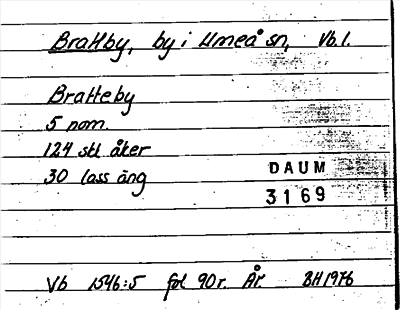 Brattby, by i Umeå sn, Vb. l.
Bratteby
5 nom.
124 skl åker
30 lass äng
DAUM
3169
Vb 1546:5 fol 90 r. År. BH 1976